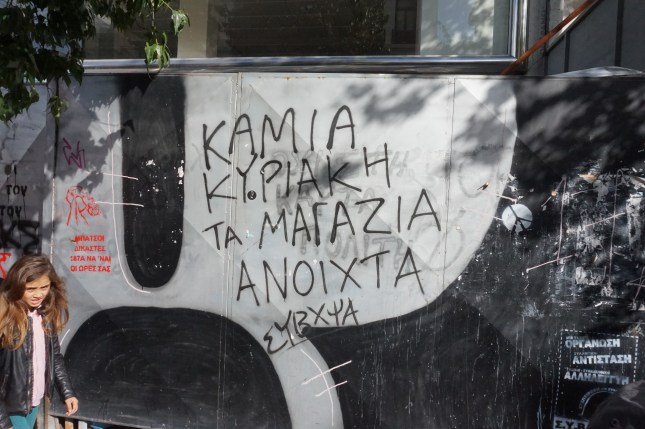 ΚΑΜΙΑ
ΚΥΡΙΑΚΗ
ΤΑ ΜΑΓΑΖΙΑ
ΑΝΟΙΧΤΑ
ΣΥΒΧΨΑ
ΤΟΥ
ΤΟΥ
ΜΠΑΤΣΟΙ
ΔΙΚΑΣΤΕΣ
ΝΑ 'ΝΑΙ
ΟΙ ΩΡΕΣ ΣΑΣ
ΟΡΓΑΝΩΣΗ
ΑΝΤΙΣΤΑΣΗ
ΑΛΛΗΛΕΓΓΥΗ